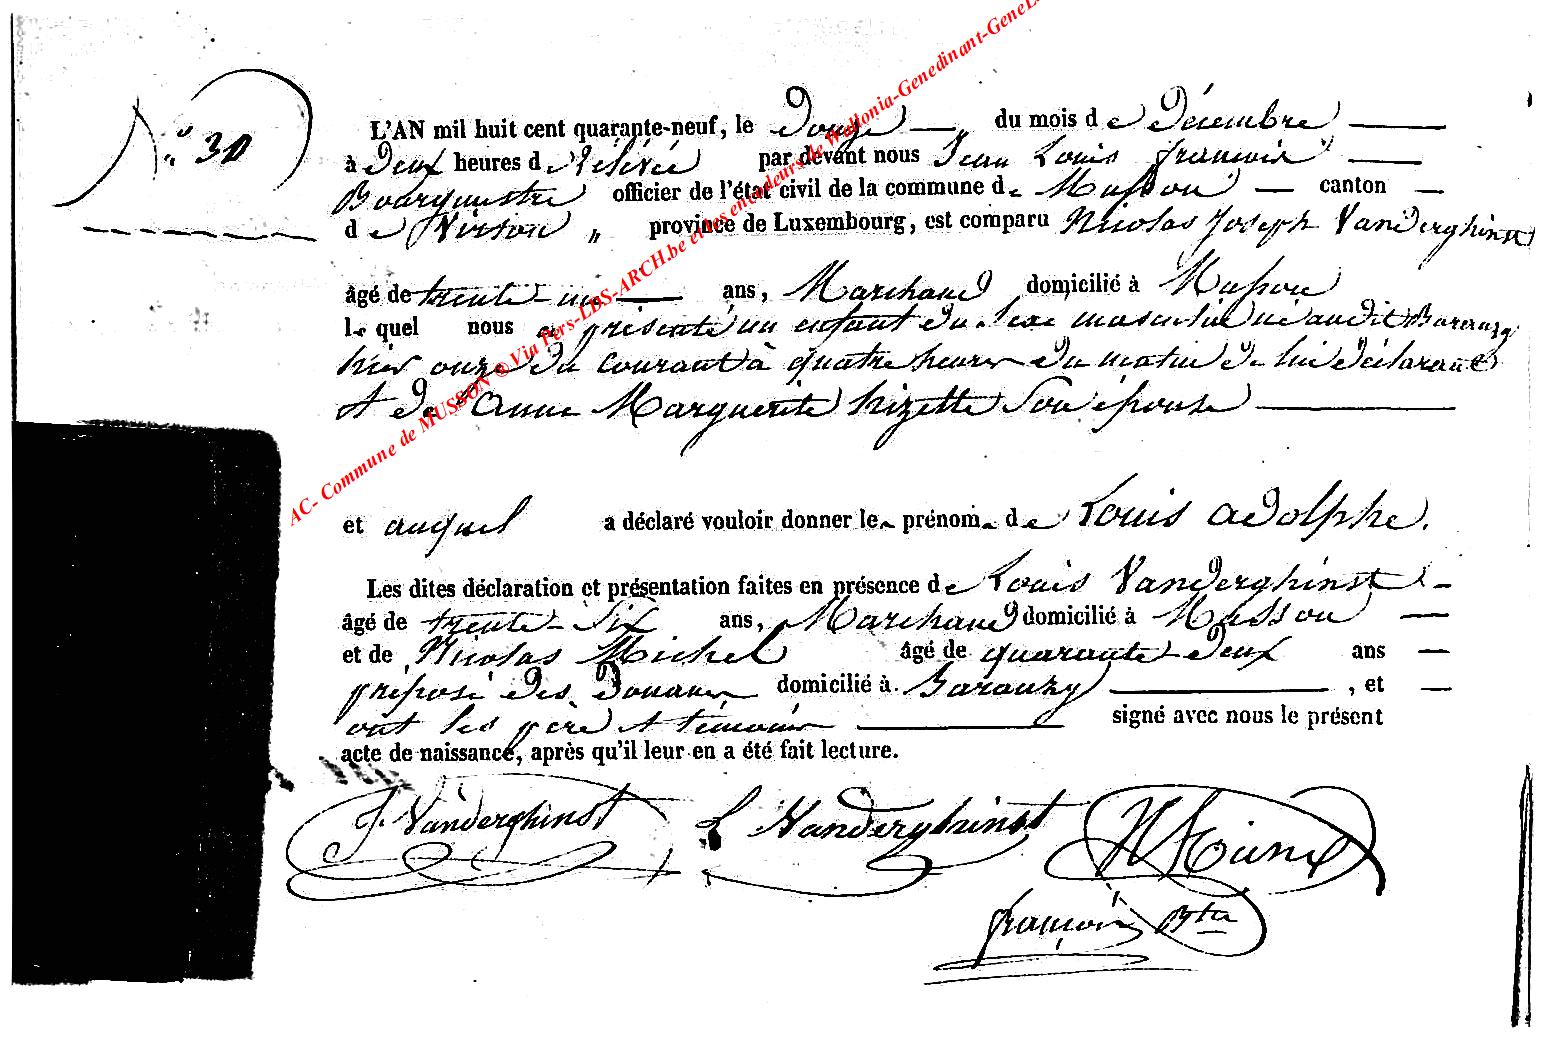 N.º 30
L'AN mil huit cent quarante-neuf, le Douze du mois de Décembre
à deux heures de Relévée par devant nous Jean Louis françois
Bourguestre officier de l'état civil de la commune de Musson canton
de Virton „ province de Luxembourg, est comparu Nicolas Joseph Vanderghinst
âgé de trente-un ans, Marchand domicilié à Musson
lequel nous a présenté un enfant du sexe masculin né audit Baranzy
hier onze du courant à quatre heures du matin de lui déclarant
et de Anne Marguerite Lizette Son épouse
et auquel a déclaré vouloir donner les prénoms de Louis Adolphe.
Les dites déclaration et présentation faites en présence de Louis Vanderghinst
âgé de trente-Six ans, Marchand domicilié à Musson
et de Nicolas Michel âgé de quarante-deux ans
préposé des Douanes domicilié à Baranzy, et
ont les père et témoins signé avec nous le présent
acte de naissance, après qu'il leur en a été fait lecture.
J. Vanderghinst L Vanderghinst
françois Btre
AC- Commune de MUSSON © Via Pers-LDS-ARCH.be et ses encodeurs de Wallonia-Genedinant-GeneL